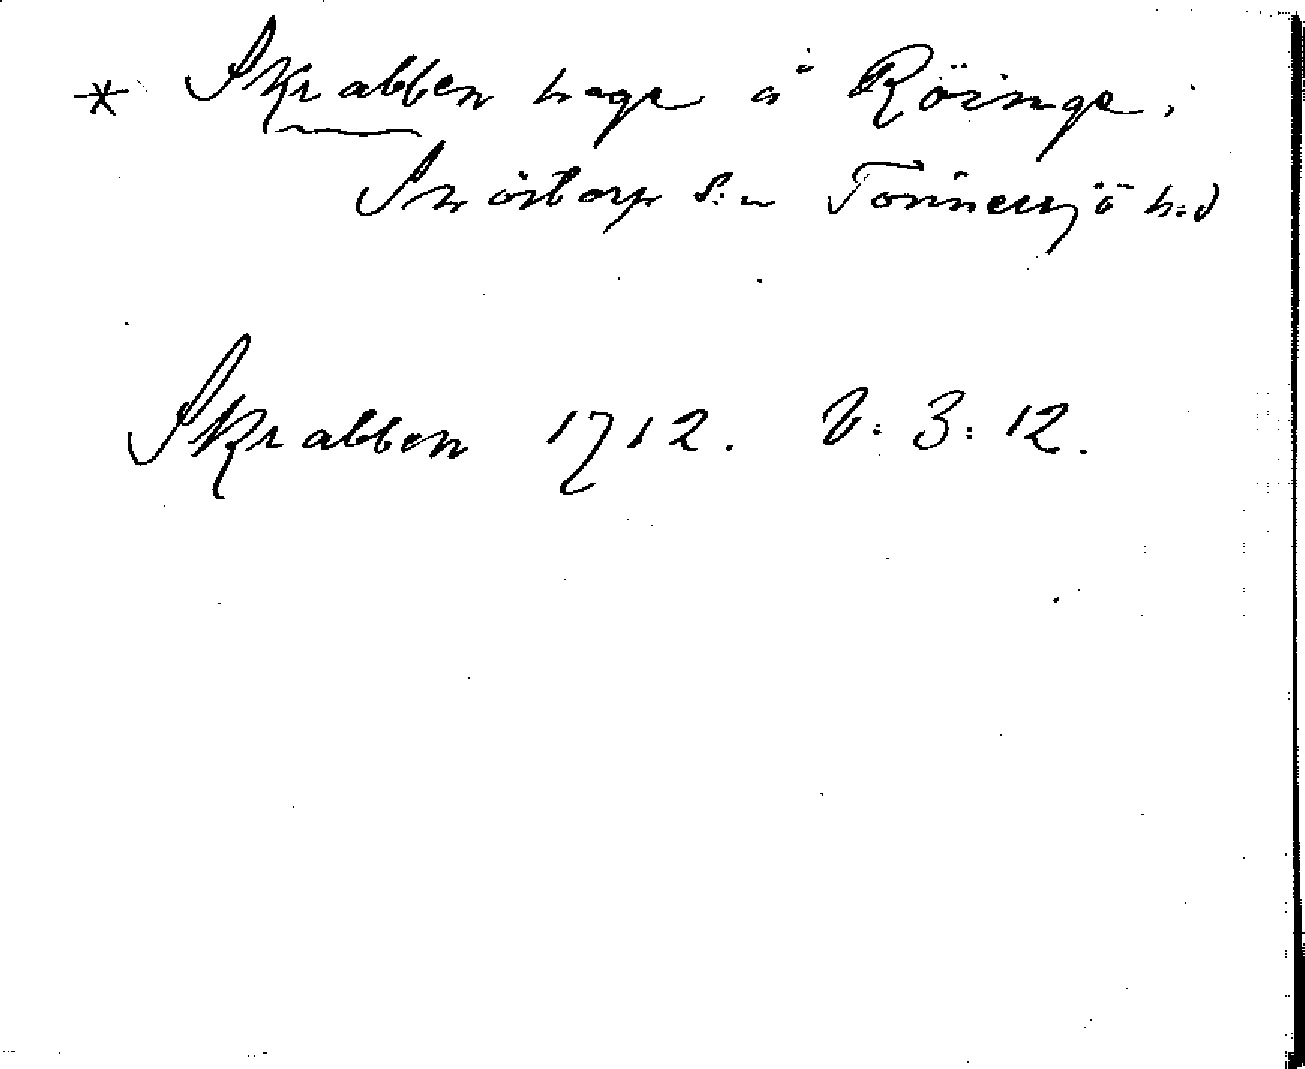 * Skrabben hage å Röinge i
Snöstorp s:n Tönnersjö h:d
Skrabben 1712. V: 3: 12.